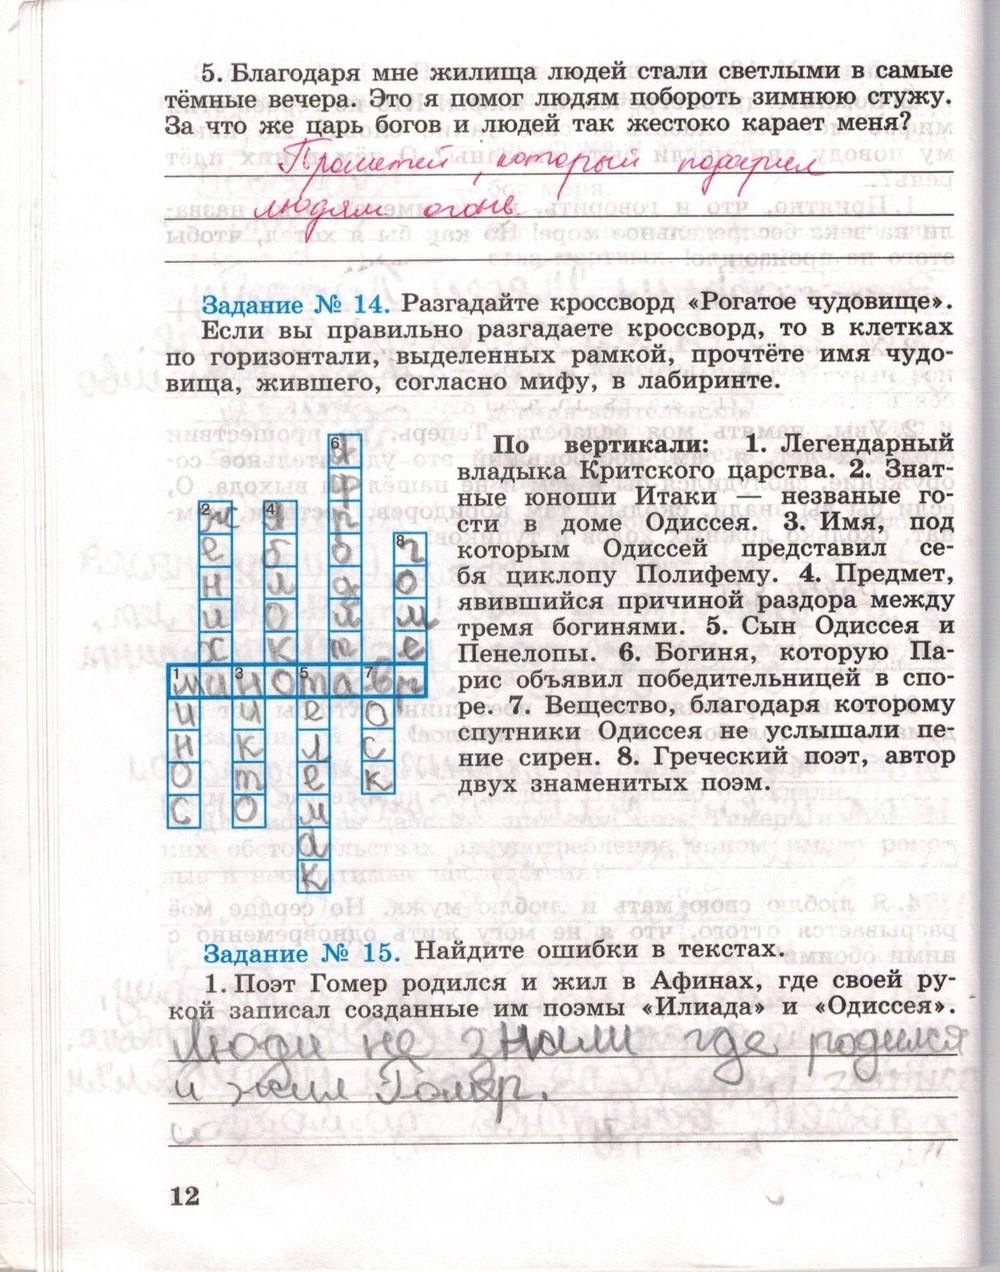 5. Благодаря мне жилища людей стали светлыми в самые
тёмные вечера. Это я помог людям побороть зимнюю стужу.
За что же царь богов и людей так жестоко карает меня?
Прометей, который подарил
людям огонь
Задание № 14. Разгадайте кроссворд «Рогатое чудовище».
Если вы правильно разгадаете кроссворд, то в клетках
по горизонтали, выделенных рамкой, прочтёте имя чудо-
вища, жившего, согласно мифу, в лабиринте.
6
а
ф
2 ж 4 я р
е б о 8 г
н л д о
и о и м
х к т е
1 м и 3 н о 5 т а 7 в р
и и е о
н к л с
о т е к
с о м
а
к
По вертикали: 1. Легендарный
владыка Критского царства. 2. Знат-
ные юноши Итаки — незваные го-
сти в доме Одиссея. 3. Имя, под
которым Одиссей представил се-
бя циклопу Полифему. 4. Предмет,
явившийся причиной раздора между
тремя богинями. 5. Сын Одиссея и
Пенелопы. 6. Богиня, которую Па-
рис объявил победительницей в спо-
ре. 7. Вещество, благодаря которому
спутники Одиссея не услышали пе-
ние сирен. 8. Греческий поэт, автор
двух знаменитых поэм.
Задание № 15. Найдите ошибки в текстах.
1. Поэт Гомер родился и жил в Афинах, где своей ру-
кой записал созданные им поэмы «Илиада» и «Одиссея».
Люди не знали где родился
и жил Гомер.
12